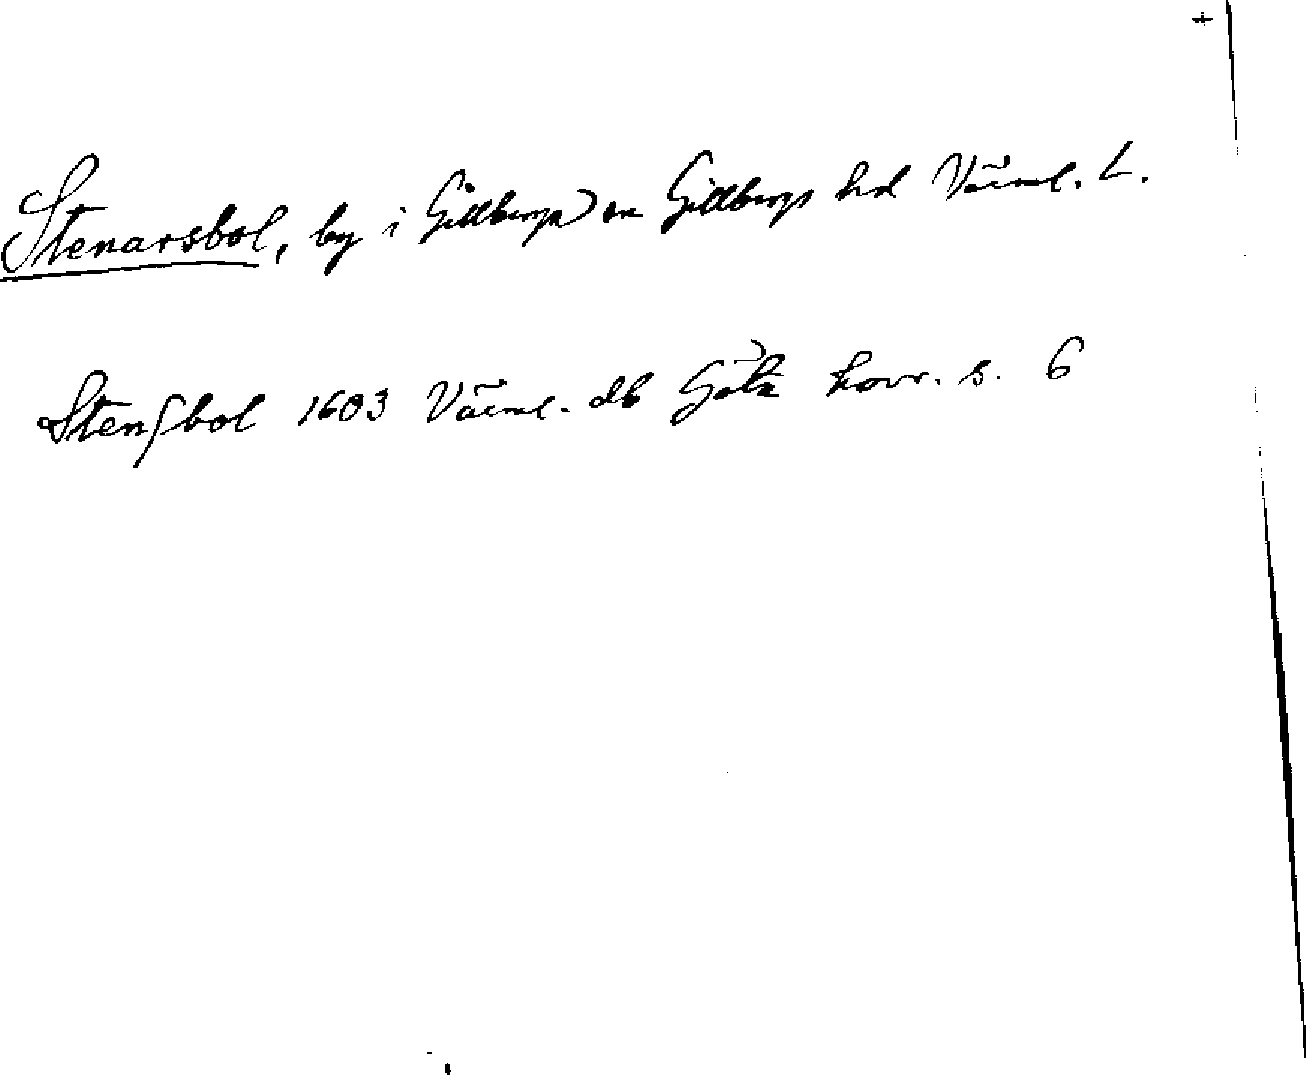 +
Stenarsbol, by i Gillberga sn Gillbergs hd Värml. L.
Stenſbol 1603 Värml. db Göta hovr. s. 6